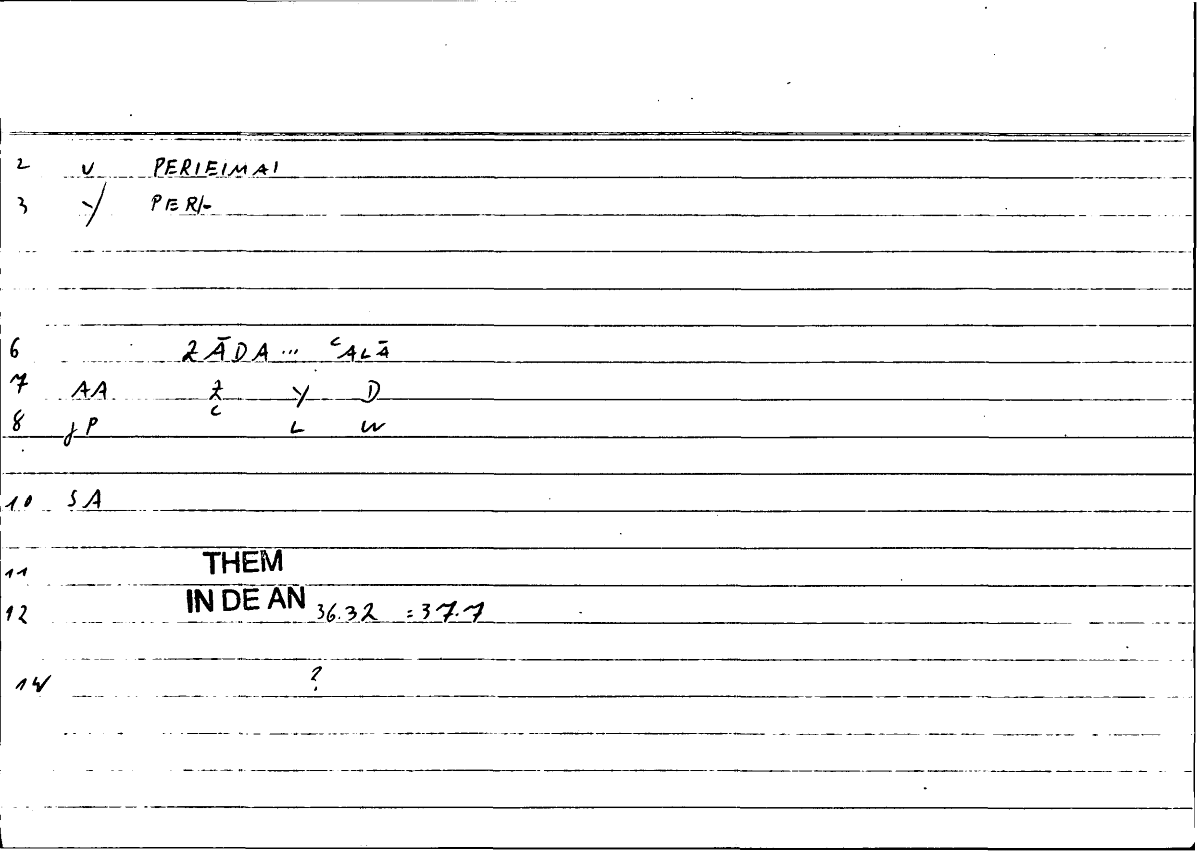 2 V PERIEIMAI
3 Y/ PERI-
6 ZĀDA ... ʿALĀ
7 AA Z Y D
8 JP ʿ L W
10 SA
11 THEM
12 IN DE AN 36.32 = 37.7
14 ?